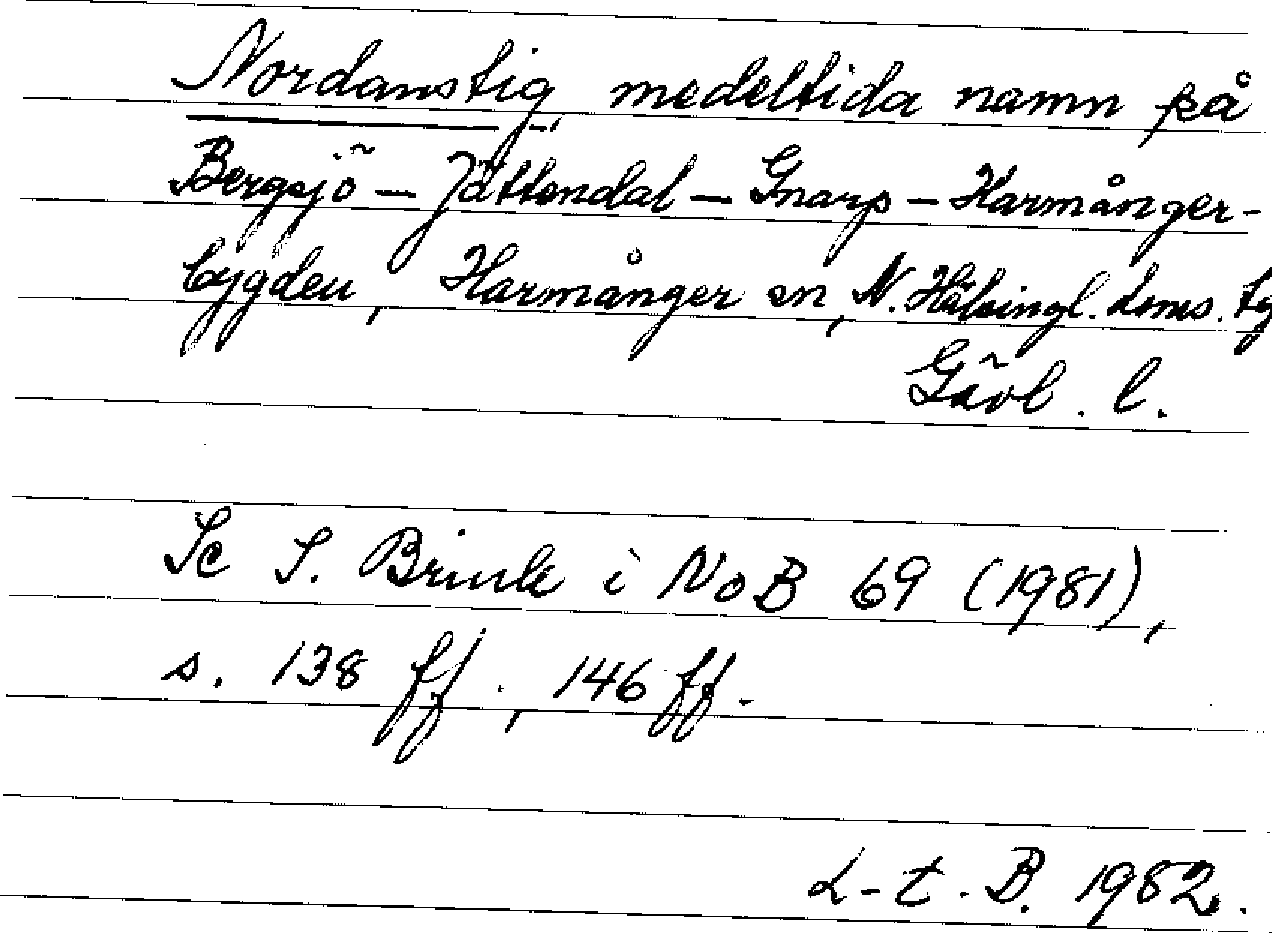 Nordanstig medeltida namn på
Bergsjö – Jättendal – Gnarp – Harmånger-
bygden, Harmånger sn, N. Hälsingl. doms. tg
Gävl. l.
Se S. Brink i NoB 69 (1981),
s. 138 ff., 146 ff.
L-t. B. 1982.